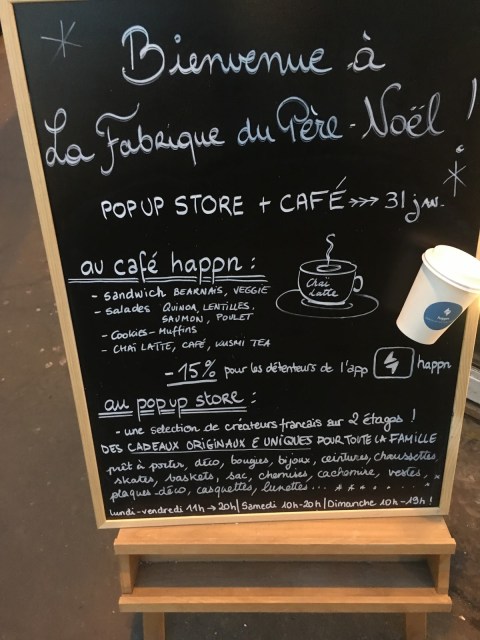 Bienvenue à
La Fabrique du Père-Noël !
POPUP STORE + CAFÉ >>> 31 janv.
au café happn :
- Sandwich BEARNAIS, VEGGIE
- Salades QUINOA, LENTILLES,
SAUMON, POULET
- Cookies - Muffins
- CHAÏ LATTE, CAFÉ, KUSMI TEA
Chaï
Latte
- 15% pour les détenteurs de l'app happn
au popup store :
- une selection de créateurs francais sur 2 étages !
DES CADEAUX ORIGINAUX & UNIQUES POUR TOUTE LA FAMILLE
prêt à porter, déco, bougies, bijoux, ceintures, chaussettes,
skates, baskets, sac, chemises, cachemire, vestes,
plaques déco, casquettes, lunettes...
lundi-vendredi 11h → 20h | Samedi 10h-20h | Dimanche 10h-19h !